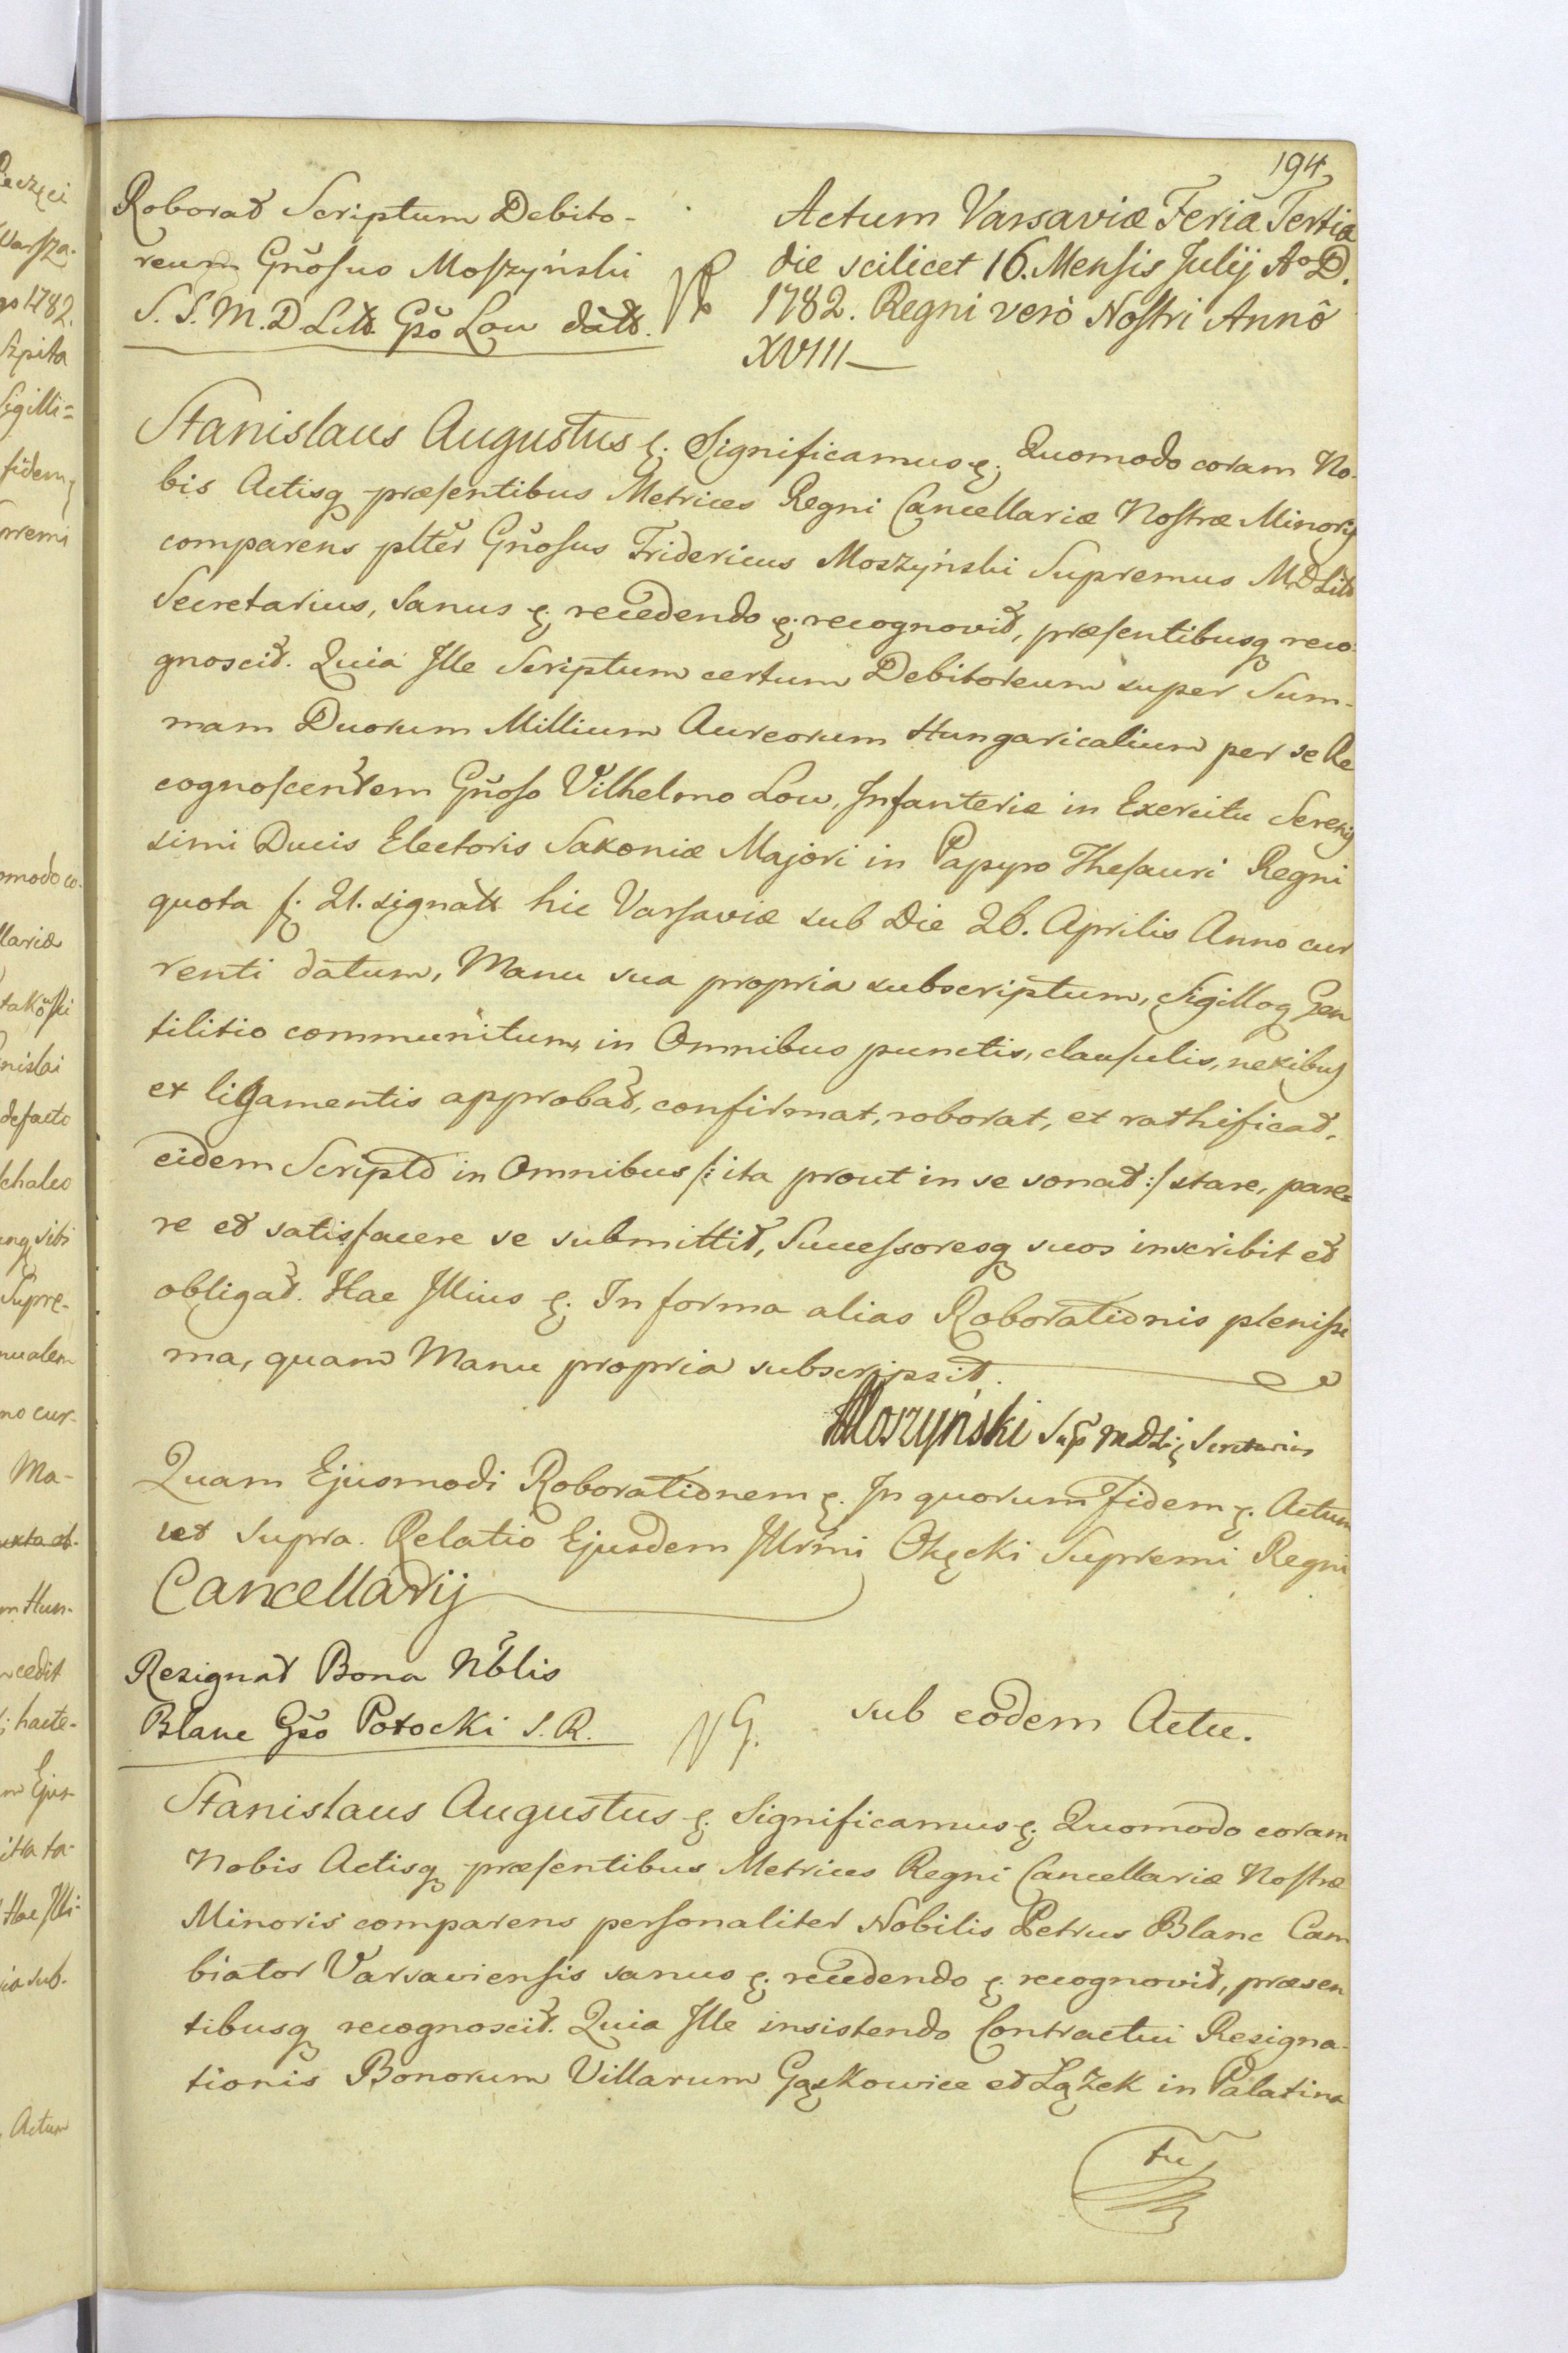 194
Roborat Scriptum Debito-
reum Gñosus Moszyński
S. S. M. D. Litt Gso Low datt.
Actum Varsaviæ Feria Tertia
die scilicet 16. Mensis Julij Ao D.
1782. Regni verò Nostri Annô
XVIII
Stanislaus Augustus &. Significamus &. Quomodo coram No-
bis Actisq præsentibus Metrices Regni Cancellariæ Nostræ Minoris
comparens plter Gñosus Fridericus Moszyński Supremus M. D. Litt
Secretarius, Sanus &. recedendo &. recognovit, præsentibusq reco-
gnoscit. Quia Ille Scriptum certum Debitoreum super Sum-
mam Duorum Millium Aureorum Hungaricalium per se Re
cognoscentem Gñoso Vilhelmo Low, Infanteriæ in Exercitu Serenis
simi Ducis Electoris Saxoniæ Majori in Papyro Thesauri Regni
quota f. 21. signatt hic Varsaviæ sub Die 26. Aprilis Anno cur
renti datum, Manu sua propria subscriptum, Sigilloq Gen
tilitio communitum, in Omnibus punctis, clausulis, nexibus
et ligamentis approbat, confirmat, roborat, et rathificat,
eidem Scripto in Omnibus /: ita prout in se sonat :/ stare, pare=
re et satisfacere se submittit, Successoresq suos inscribit et
obligat. Hac Illius &. In forma alias Roborationis plenissi
ma, quam Manu propria subscripsit.
Moszyński Sup M D Li Secretarius
Quam Ejusmodi Roborationem &. In quorum Fidem &. Actum
ut supra. Relatio Ejusdem Illrmi Okęcki Supremi Regni
Cancellarij
Resignat Bona Nblis
Blanc Gso Potocki S. R.
NG.
sub eodem Actu.
Stanislaus Augustus &. Significamus &. Quomodo coram
Nobis Actisq præsentibus Metrices Regni Cancellariæ Nostræ
Minoris comparens personaliter Nobilis Petrus Blanc Cam
biator Varsaviensis sanus &. recedendo &. recognovit, præsen
tibusq recognoscit. Quia Ille insistendo Contractui Resigna-
tionis Bonorum Villarum Gąskowice et Lążek in Palatina
tu